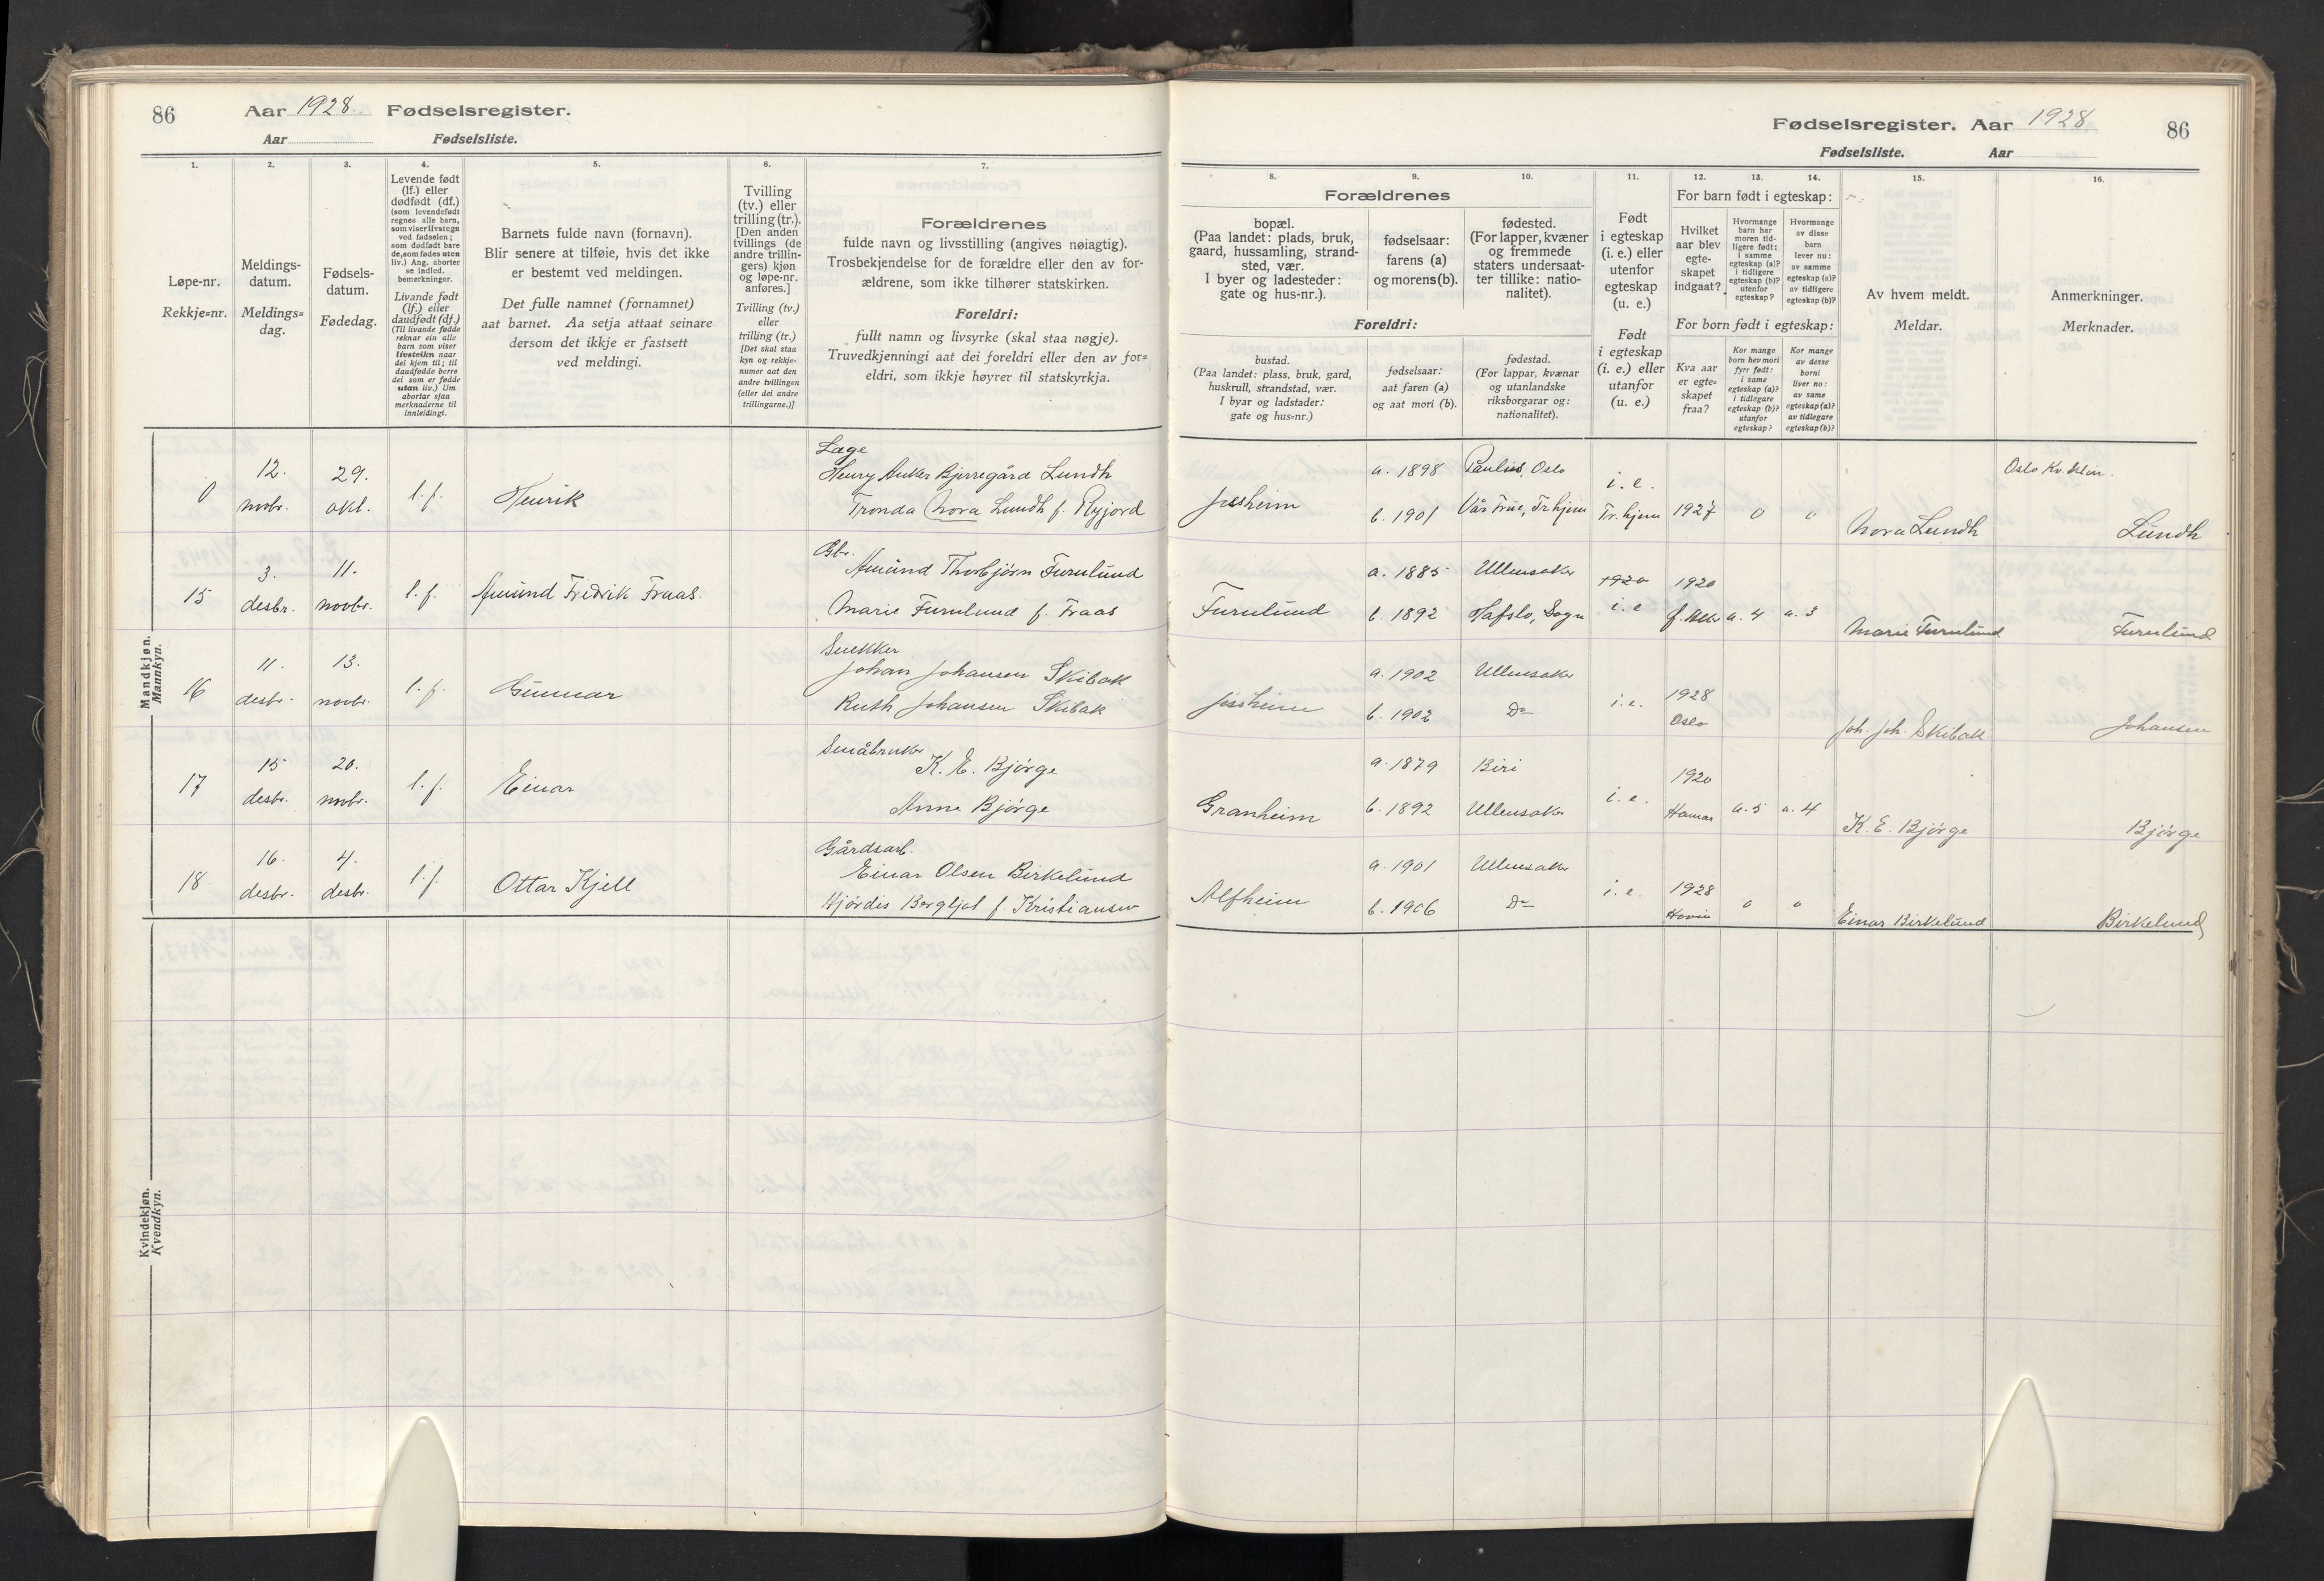 86
Aar 1928 Fødselsregister.
Aar Fødselsliste.
1.
2.
3.
4.
5.
6.
7.
Løpe-nr.
Rekkje=nr.
Meldings-
datum.
Meldings=
dag.
Fødsels-
datum.
Fødedag.
Levende født
(lf.) eller
dødfødt (df.)
(som levendefødt
regnes alle barn,
som viser livstegn
ved fødselen;
som dødfødt bare
de, som fødes uten
liv.) Ang. aborter
se indled.
bemerkninger.
Livande født
(lf.) eller
daudfødt (df.)
(Til livande fødde
reknar ein alle
barn som viser
livsteikn naar
dei kjem til; til
daudfødde berre
dei som er fødde
utan liv.) Um
abortar sjaa
merknaderne til
innleidingi.
Barnets fulde navn (fornavn).
Blir senere at tilføie, hvis det ikke
er bestemt ved meldingen.
Det fulle namnet (fornamnet)
aat barnet. Aa setja attaat seinare
dersom det ikkje er fastsett
ved meldingi.
Tvilling
(tv.) eller
trilling (tr.).
[Den anden
tvillings (de
andre trillin-
gers) kjøn
og løpe-nr.
anføres.]
Tvilling (tv.)
eller
trilling (tr.)
[Det skal staa
kyn og rekkje-
numer aat den
andre tvillingen
(eller dei andre
trillingarne.)]
Forældrenes
fulde navn og livsstilling (angives nøiagtig).
Trosbekjendelse for de forældre eller den av for-
ældrene, som ikke tilhører statskirken.
Foreldri:
fullt namn og livsyrke (skal staa nøgje).
Truvedkjenningi aat dei foreldri eller den av for=
eldri, som ikkje høyrer til statskyrkja.
Mandkjøn.
Mannkyn.
0
12.
novbr.
29.
okt.
l. f.
Henrik
Læge
Henry Anker Bjerregård Lundh
Tronda Nora Lundh f. Ryjord
15
3.
desbr.
11.
novbr.
l. f.
Amund Fredrik Fraas.
Gbr.
Amund Thorbjørn Furulund
Marie Furulund f. Fraas
16
11.
desbr.
13.
novbr.
l. f.
Gunnar
Snekker
Johan Johansen Skibak
Ruth Johansen Skibak
17
15
desbr.
20.
novbr.
l. f.
Einar
Småbruker
K. E. Bjørge
Anne Bjørge
18.
16.
desbr.
4.
desbr.
l. f.
Ottar Kjell
Gårdsarb.
Einar Olsen Birkelund
Hjørdis Bergljot f. Kristiansen
Kvindekjøn.
Kvendkyn.
Fødselsregister. Aar 1928
86
Fødselsliste. Aar
8.
9.
10.
11.
12.
13.
14.
15.
16.
Forældrenes
bopæl.
(Paa landet: plads, bruk,
gaard, hussamling, strand-
sted, vær.
I byer og ladesteder:
gate og hus-nr.).
fødselsaar:
farens (a)
og morens (b).
fødested.
(For lapper, kvæner
og fremmede
staters undersaat-
ter tillike: natio-
nalitet).
Foreldri:
bustad.
(Paa landet: plass, bruk, gard,
huskrull, strandstad, vær.
I byar og ladstader:
gate og hus=nr.)
fødselsaar:
aat faren (a)
og aat mori (b).
fødestad.
(For lappar, kvænar
og utanlandske
riksborgarar og:
nationalitet).
Født
i egteskap
(i. e.) eller
utenfor
egteskap
(u. e.)
Født
i egteskap
(i. e.) eller
utanfor
(u. e.)
For barn født i egteskap:
Hvilket
aar blev
egte-
skapet
indgaat?
Hvormange
barn har
moren tid-
ligere født:
i samme
egteskap (a)?
i tidligere
egteskap (b)?
utenfor
egteskap?
Hvormange
av disse
barn
lever nu:
av samme
egteskap (a)?
av tidligere
egteskap (b)?
For born født i egteskap:
Kva aar
er egte=
skapet
fraa?
Kor mange
born hev mori
fyrr født:
i same
egteskap (a)?
i tidlegare
egteskap (b)?
utanfor
egteskap?
Kor mange
av desse
borni
liver no:
av same
egteskap (a)?
av tidlegare
egteskap (b)?
Av hvem meldt.
Meldar.
Anmerkninger.
Merknader.
Jessheim
a. 1898
b. 1901
Paulus, Oslo
Vår Frue, Tr.hjem
i. e.
Tr.hjem
1927
0
0
Nora Lundh
Oslo Kv.klin.
Lundh
Furulund
a. 1885
b. 1892
Ullensaker
Hafslo, Sogn
1920
i. e
1920
a. 4
a. 3
Marie Furulund
Furulund
Jessheim
a. 1902
b. 1902
Ullensaker
Do
i. e.
1928
Oslo
Joh. Joh. Skibak
Johansen
Granheim
a. 1879
b. 1892
Biri
Ullensaker
i. e.
1920
Hamar
a. 5
a. 4
K. E. Bjørge
Bjørge
Alfheim
a. 1901
b. 1906
Ullensaker
Do
i. e.
1928
Hovin
0
0
Einar Birkelund
Birkelund